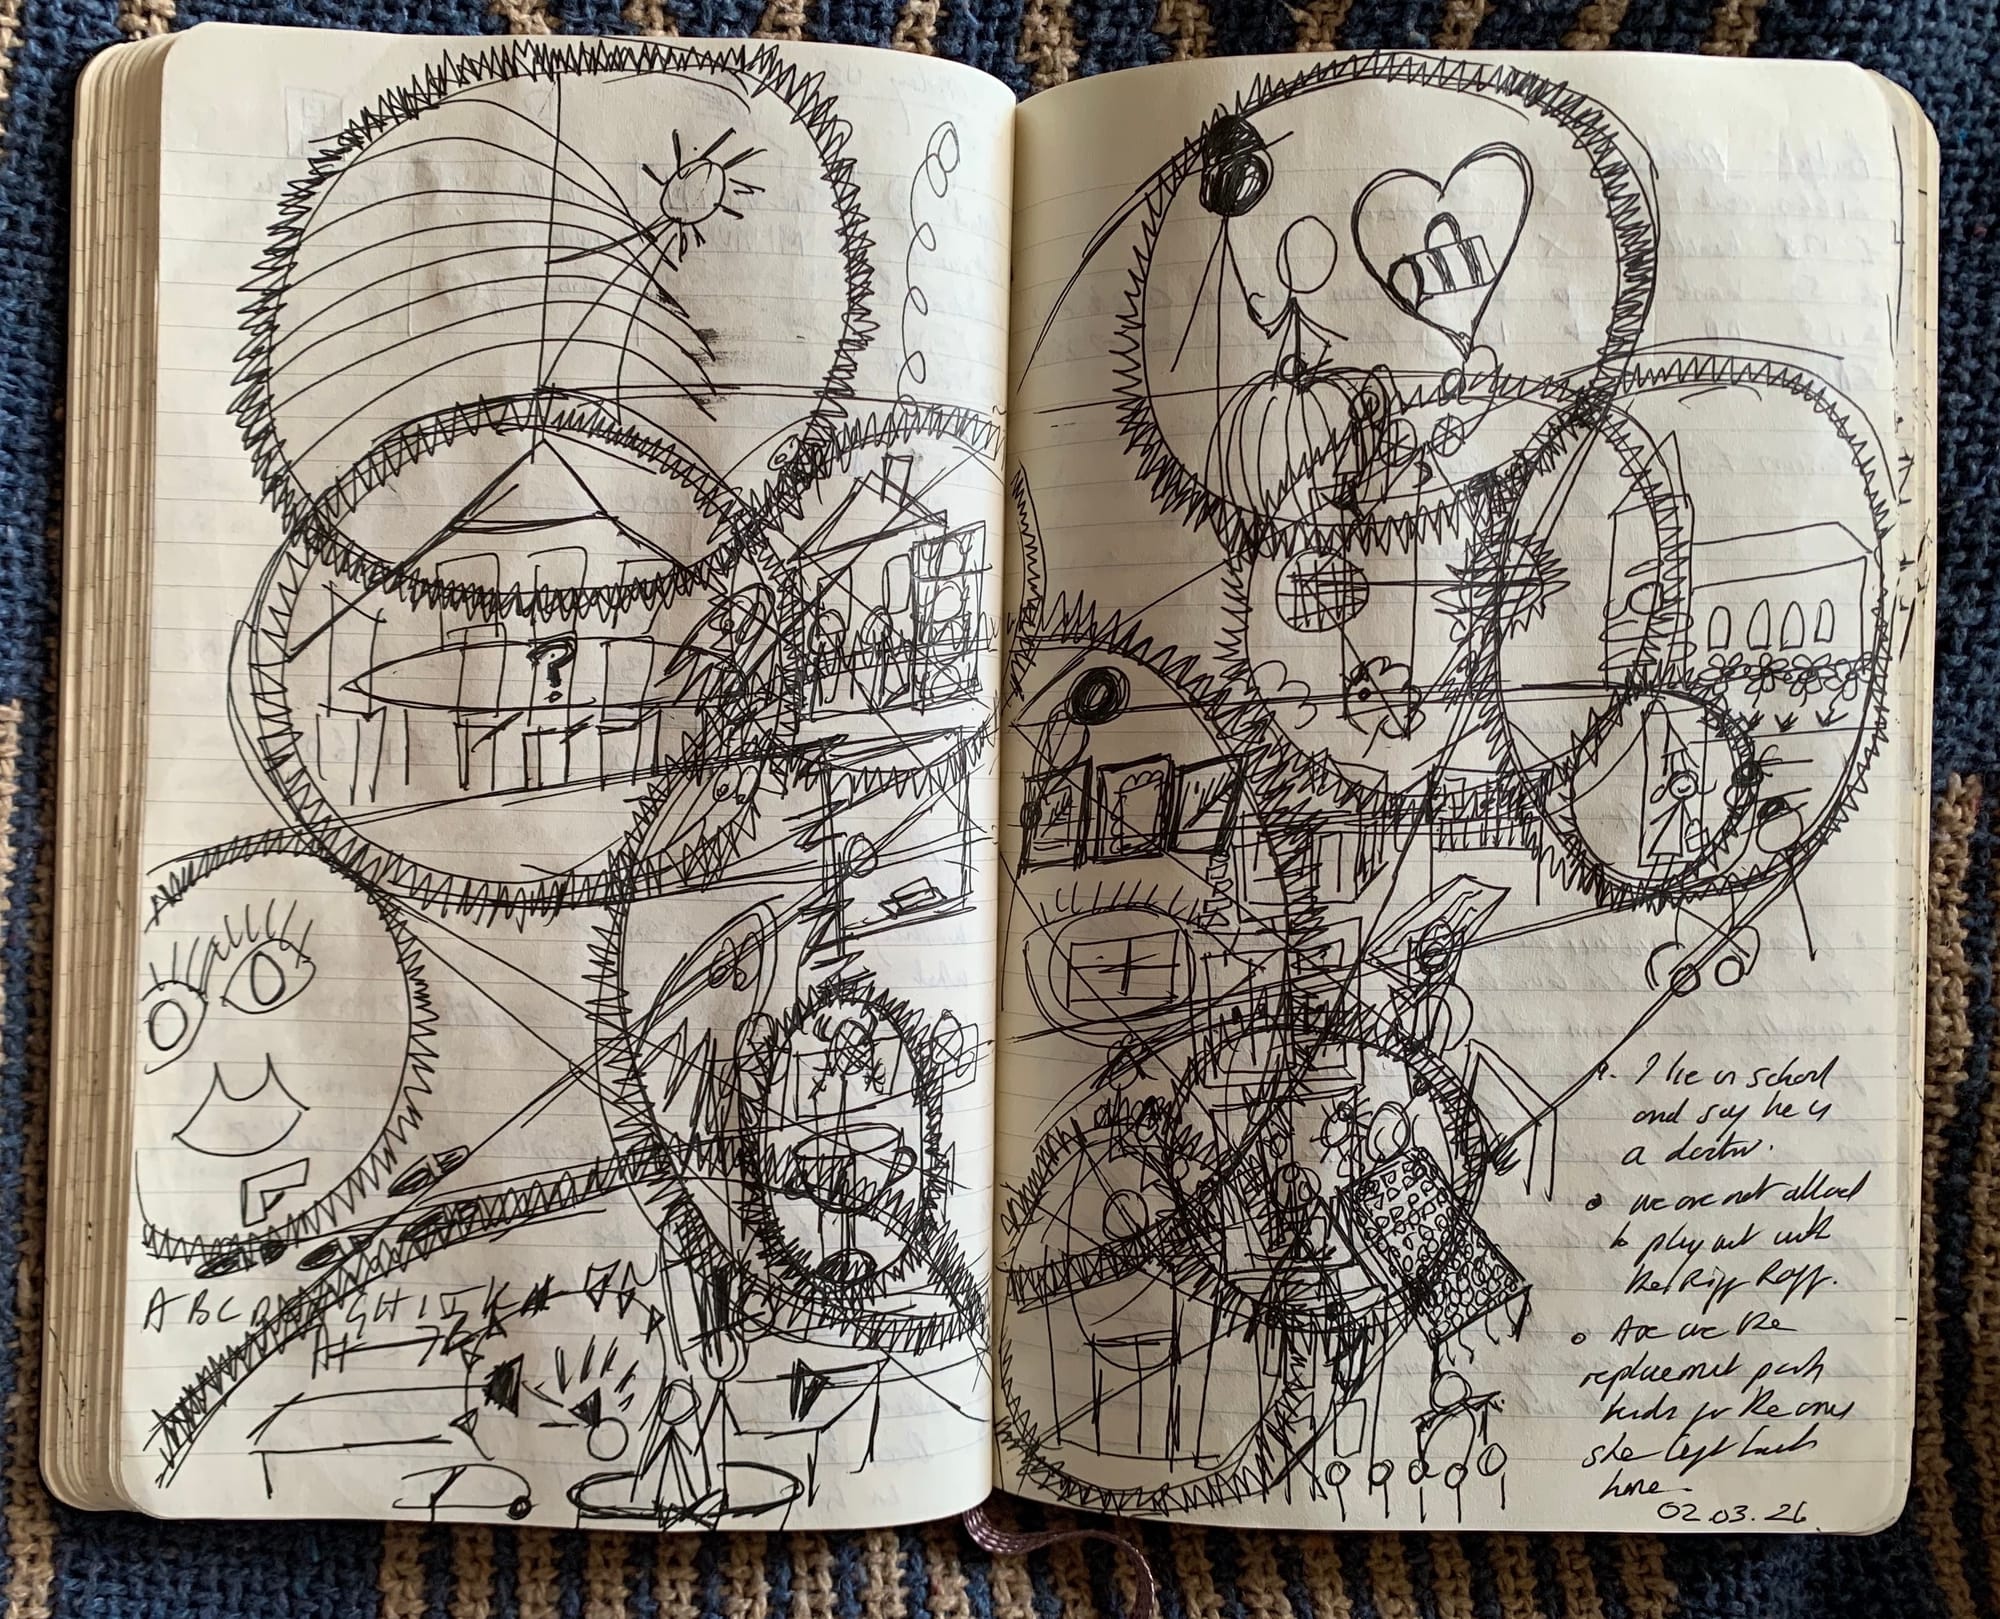 ?
F
A B C D G H I J K
A + 7 2
• I lie in school
and say he is
a doctor.
• We are not allowed
to play out with
the Riff Raff.
• Are we the
replacement
kids for the ones
she left back
home.
02.03.26.